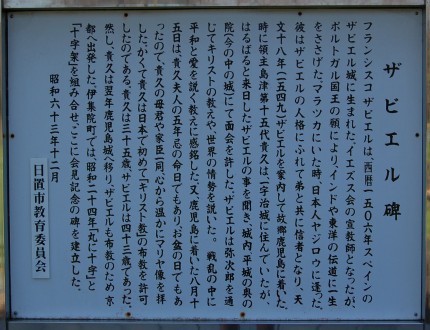 ザビエル碑
フランシスコ ザビエルは、西暦一五〇六年スペインの
ザビエル城に生まれ、イエズス会の宣教師となったが、
ポルトガル国王の願により、インドや東洋の伝道に一生
をささげた。マラツカにいた時、日本人ヤジロウに逢った。
彼はザビエルの人格にふれて弟と共に信者となり、天
文十八年(一五四九)ザビエルを案内して故郷鹿児島に着いた。
時に領主島津第十五代貴久は、一宇治城に住んでいたが、
はるばると来日したザビエルの事を聞き、城内平城の奥の
院(今の中の城)にて面会を許した。ザビエルは弥次郎を通
じてキリストの教えや世界の情勢を説いた。戦乱の中に
平和と愛を説く教えに感銘した。又、鹿児島に着いた八月十
五日は、貴久夫人の五年忌の命日でもあり、お盆の日でもあ
ったので、貴久の母君や家臣一同、心から温かにマリヤ像を拝
した。かくて貴久は日本で初めて「キリスト教」の布教を許可
したのである。貴久は三十五歳、ザビエルは四十三歳であった。
然し、貴久は翌年鹿児島城へ移り、ザビエルも布教のため京
都へ出発した。伊集院町では、昭和二十四年「丸に十字」と
「十字架」を組み合せ、ここに会見記念の碑を建立した。
昭和六十三年十二月
日置市教育委員会